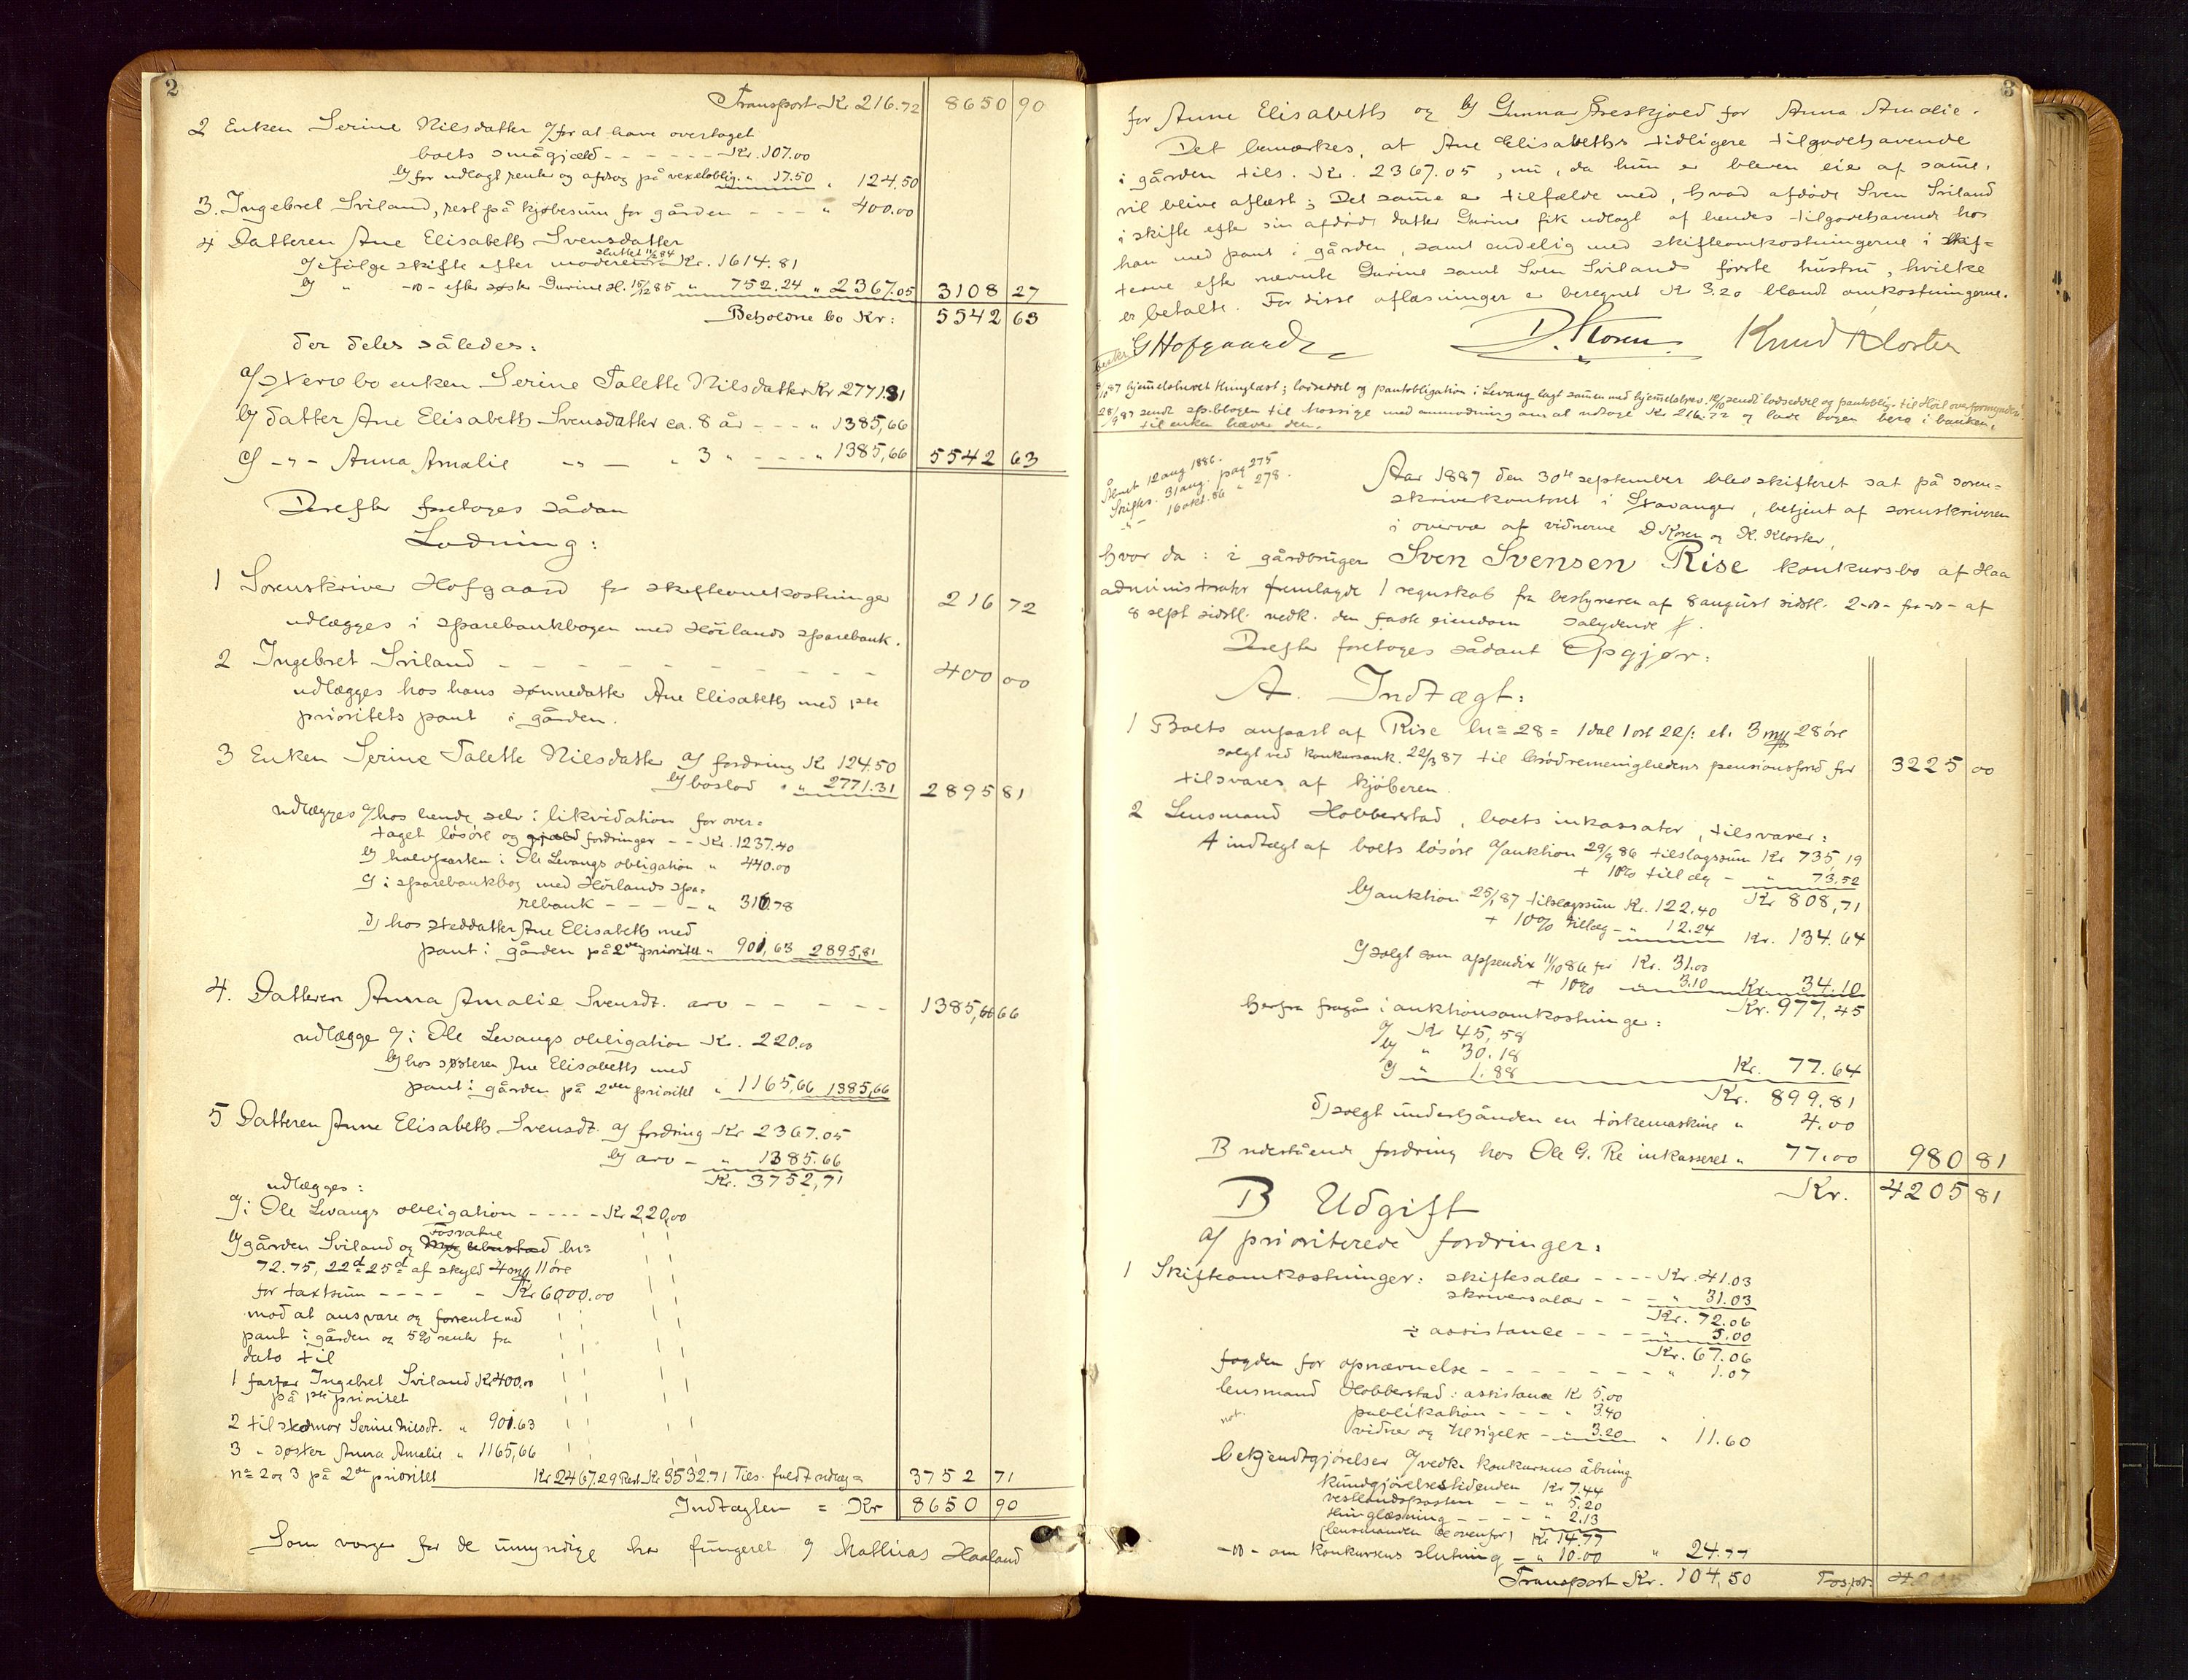 2
Transport Kr. 216.72 8650 90
2 Enken Serine Nilsdatter a/ for at have overtaget
boets smågjæld - - - - - - Kr. 107.00
b/ for udlagt renter og afdrag på vexeloblig. " 17.50 " 124.50
3. Ingebret Sviland, rest på kjøbesum for gården - - - " 400.00
4 Datteren Ane Elisabeth Svensdatter
sluttet 11/2 84
a/ ifølge skifte efter moderen Kr. 1614.81
b/ " -"- efter søster Gurine sl. 15/12 85 " 752.24 " 2367.05 3108 27
Beholdne bo Kr: 5542 63
der deles således:
a/ enken Serine Talette Nilsdatter Kr 2771.31
b/ datter Ane Elisabeth Svensdatter ca. 8 år - - - " 1385,66
c/ -"- Anna Amalie -"- " 3 " - - - " 1385,66 5542 63
Derefter foretoges sådan
Lodning:
1 Sorenskriver Hofgaard for skifteomkostninger 216 72
udlægges i sparebankbogen med Hörlands sparebank.
2 Ingebret Sviland - - - - - - - - 400 00
udlægges hos hans sønnedatter Ane Elisabeth med 1ste
prioritets pant i gården.
3 Enken Serine Talette Nilsdatter a/ fordring Kr 124.50
b/ boslod " " 2771.31 2895 81
udlægges a/ hos hende selv i likvidation for over=
taget lösöre og gjæld fordringer - - Kr. 1237.40
b/ halvparten i Ole Levangs obligation " 440.00
c/ i sparebankbog med Hörlands spa=
rebank - - - - - " 316.78
d/ hos steddatter Ane Elisabeth med
pant i gården på 2den prioritet " 901,63 2895,81
4. Datteren Anna Amalie Svensdt. arv - - - - - 1385,66 66
udlægges a/ i Ole Levangs obligation Kr. 220.00
b/ hos søsteren Ane Elisabeth med
pant i gården på 2den prioritet " 1165,66 1385,66
5 Datteren Anne Elisabeth Svensdt. a/ fordring Kr 2367.05
b/ arv - " 1385.66
Kr. 3752,71
udlægges:
a/ i Ole Levangs obligation - - - - - Kr 220,00
Fosvatne
b/ gården Sviland og ln=
72.75, 22d= 25d= af skyld 4 my 11 öre
for taxtsum - - - - - Kr 6000.00
mod at ansvare og forrente med
pant i gården og 5% rente fra
dato til
1 farfar Ingebret Sviland Kr 400,00
på 1ste prioritet
2 til stedmor Serine Nilsdt. " 901.63
3 " søster Anna Amalie " 1165,66
n= 2 og 3 på 2den prioritet Kr 2467.29 Rest Kr 3532.71 Tils. fuldt udlæg = 3752 71
Indtægten = Kr 8650 90
Som verger for de umyndige har fungeret a/ Mathias Haaland
3
for Anne Elisabeth og b/ Gunnar for Anna Amalie.
Det bemærkes, at Ane Elisabeths tidligere tilgodehavende
i gården tils. Kr. 2367.05, nu, da hun er bleven eier af samme,
vil blive aflæst; Det samme er tilfælde med, hvad afdøde Sven Sviland
i skifte efter sin afdøde datter Gurine fik udlagt af hendes tilgodehavende hos
ham med pant i gården, samt endelig med skifteomkostningerne i skif=
terne efter nævnte Gurine samt Sven Svilands første hustru, hvilke
er betalte. For disse aflæsninger er beregnet Kr 3.20 blandt omkostningerne.
G Hofgaard D. Koren Knud Kloster
hjemmelsbrevet thinglæst; lodseddel og pantobligation i Levang lagt sammen med hjemmelsbrev. 12/10 sendt lodseddel og pantoblig. til Höil overformynderi
28/9 87 sendt sp.bbogen til Mossige med anmodning om at udtage Kr 216.72 og lade bogen bero i banken,
til enken hæver den.
Åbnet 12 aug 1886.
Skiftes. 31 aug. pag 275
-"- 16 okt. 86 " 278.
Aar 1887 den 30te september blev skifteret sat på soren=
skriverkontoret i Stavanger, betjent af sorenskriveren
i overvær af vidnerne D Koren og K. Kloster,
hvor da: i gårdbruger Sven Svensen Rise konkursbo af Haa
administrator fremlagde 1 regnskab fra bestyreren af 8 august sidstl. 2 -"- fra -"- af
8 sept sidstl. vedk. den faste eiendom salydende
Derefter foretoges sådant Opgjør:
A. Indtægt:
1 Boets anpart af Rise ln= 28= 1 dal 1 ort 22 s: el. 3 my 28 öre
solgt ved konkursauk. 22/3 87 til brödremenighedens pensionsfond for 3225 00
tilsvares af kjøberen.
2 Lensmand Hobberstad, boets inkassator, tilsvarer:
A indtægt af boets lösöre a/ auktion 29/9 86 tilslagssum Kr 735,19
+ 10% tillæg - " 73,52
Kr 808,71
b/ auktion 25/1 87 tilslagssum Kr. 122.40
+ 10% tillæg - " 12.24 Kr. 134.64
c/ solgt som appendix 11/10 86 for Kr. 31.00
+ 10% " 3.10 Kr. 34.10
Kr. 977,45
herfra fragår i auktionsomkostninger:
a/ Kr 45,58
b/ " 30.18
c/ " 1.88 Kr. 77.64
Kr. 899.81
d/ solgt underhånden en törkemaskine " 4.00
B udestående fordring hos Ole G. Re inkasseret " 77.00 980 81
Kr. 4205 81
B Udgift
a/ prioriterede fordringer:
1 Skifteomkostninger: skiftesalær - - - - Kr. 41.03
skriversalær - - - " 31.03
Kr. 72.06
÷ assistance - - - " 5.00
Kr. 67.06
fogden for opnævnelse - - - - - - " 1.07
lensmand Hobberstad: assistance Kr 5.00
publikation - - - " 3.40
not.
vidner og tilsigelse - " 3.20 " 11.60
bekjendtgjørelser a/ vedk. konkursens åbning
kundgjörelsestidenden Kr 7.44
vestlandsposten - - " 5.20
thinglæsning - - - - " 2.13
(lensmanden se ovenfor) Kr 14.77
-"- om konkursens slutning - " 10.00 " 24.77
Transport Kr. 104,50 4205